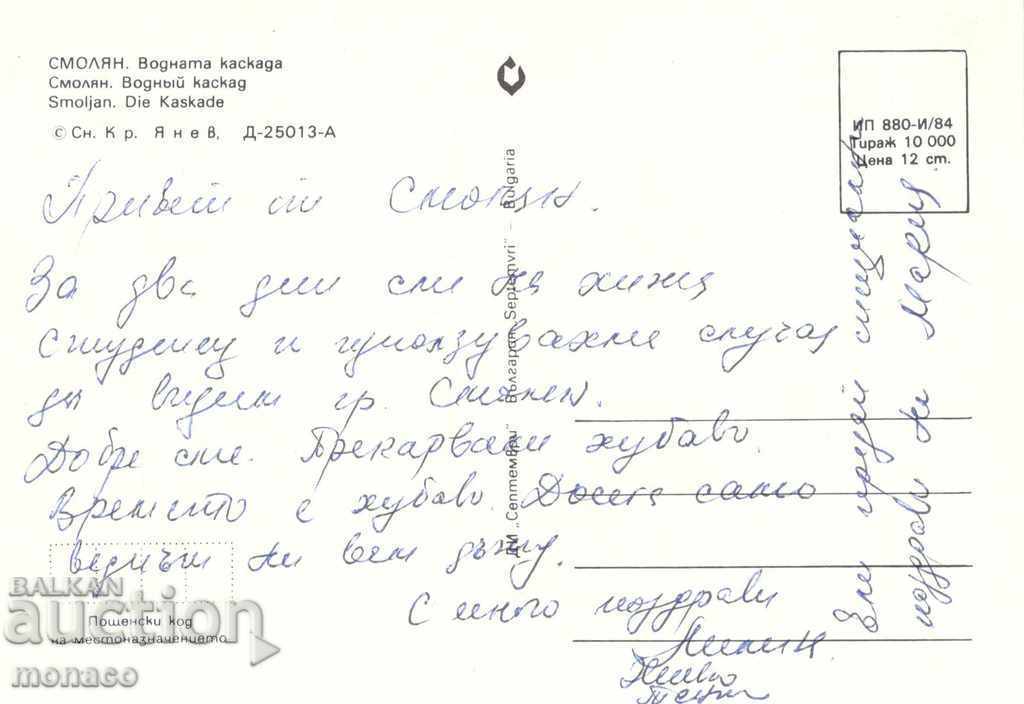 СМОЛЯН. Водната каскада
Смолян. Водный каскад
Smoljan. Die Kaskade
© Сн. Кр. Янев, Д-25013-А
ИП 880-И/84
Тираж 10 000
Цена 12 ст.
ДИ „Септември" България „Septemvri" – Bulgaria
Привет от Смолян.
За два дни сме на хижа
Студенец и използувахме случая
да видим гр. Смолян.
Добре сме. Прекарваме хубаво
Времето е хубаво. Досега само
веднъж ни валя дъжд.
С много поздрави
Лилия
Поздрави на Мария
Пощенски код
на местоназначението
BALKAN
auction
monaco